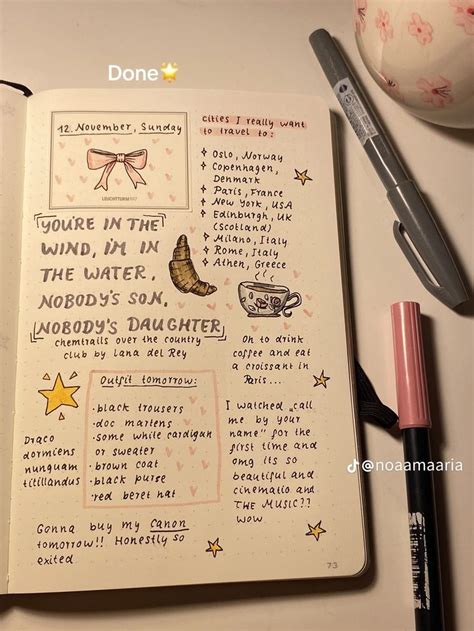 Done⭐
12. November, Sunday
LEUCHTTURM1917
YOU'RE IN THE
WIND, I'M IN
THE WATER,
NOBODY'S SON,
NOBODY'S DAUGHTER
chemtrails over the country
club by Lana del Rey
Outfit tomorrow:
·black trousers
·doc martens
·some white cardigan
or sweater
·brown coat
·black purse
·red beret hat
Draco
dormiens
nunquam
titillandus
Gonna buy my Canon
tomorrow!! Honestly so
exited
cities I really want
to travel to:
Oslo, Norway
Copenhagen,
Denmark
Paris, France
New York, USA
Edinburgh, UK
(Scotland)
Milano, Italy
Rome, Italy
Athen, Greece
Oh to drink
coffee and eat
a croissant in
Paris...
I watched „call
me by your
name" for the
first time and
omg its so
beautiful and
cinematic and
THE MUSIC??
WOW
73
@noaamaaria